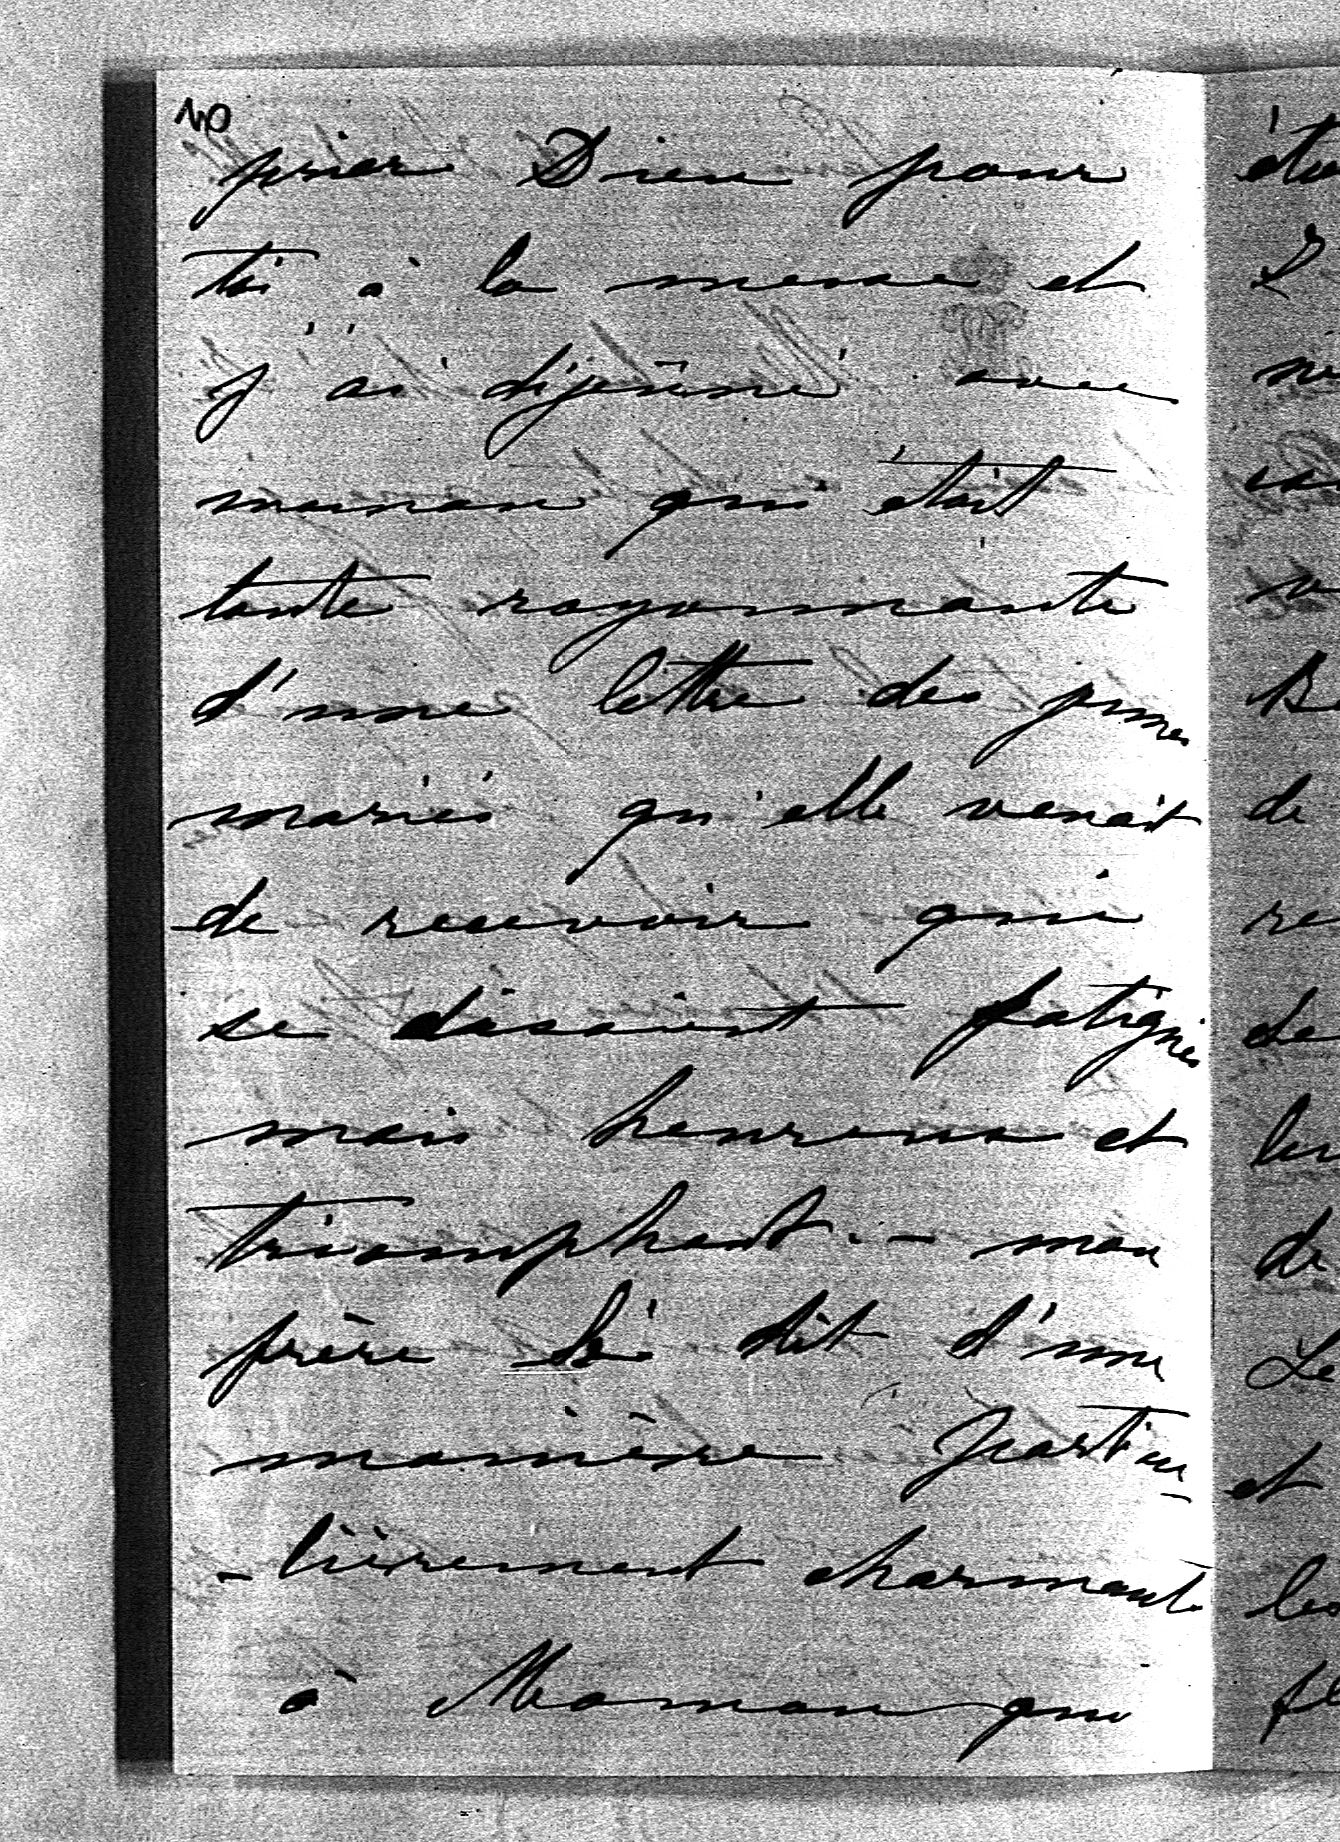 prier Dieu pour
toi à la messe et
j'ai déjeûné avec
maman qui était
toute rayonnante
d'une lettre des jeunes
mariés qu'elle venait
de recevoir qui
se disaient fatigués
mais heureux et
triomphant. – mon
frère le dit d'une
manière particu
-lièrement charmante
à Maman qui